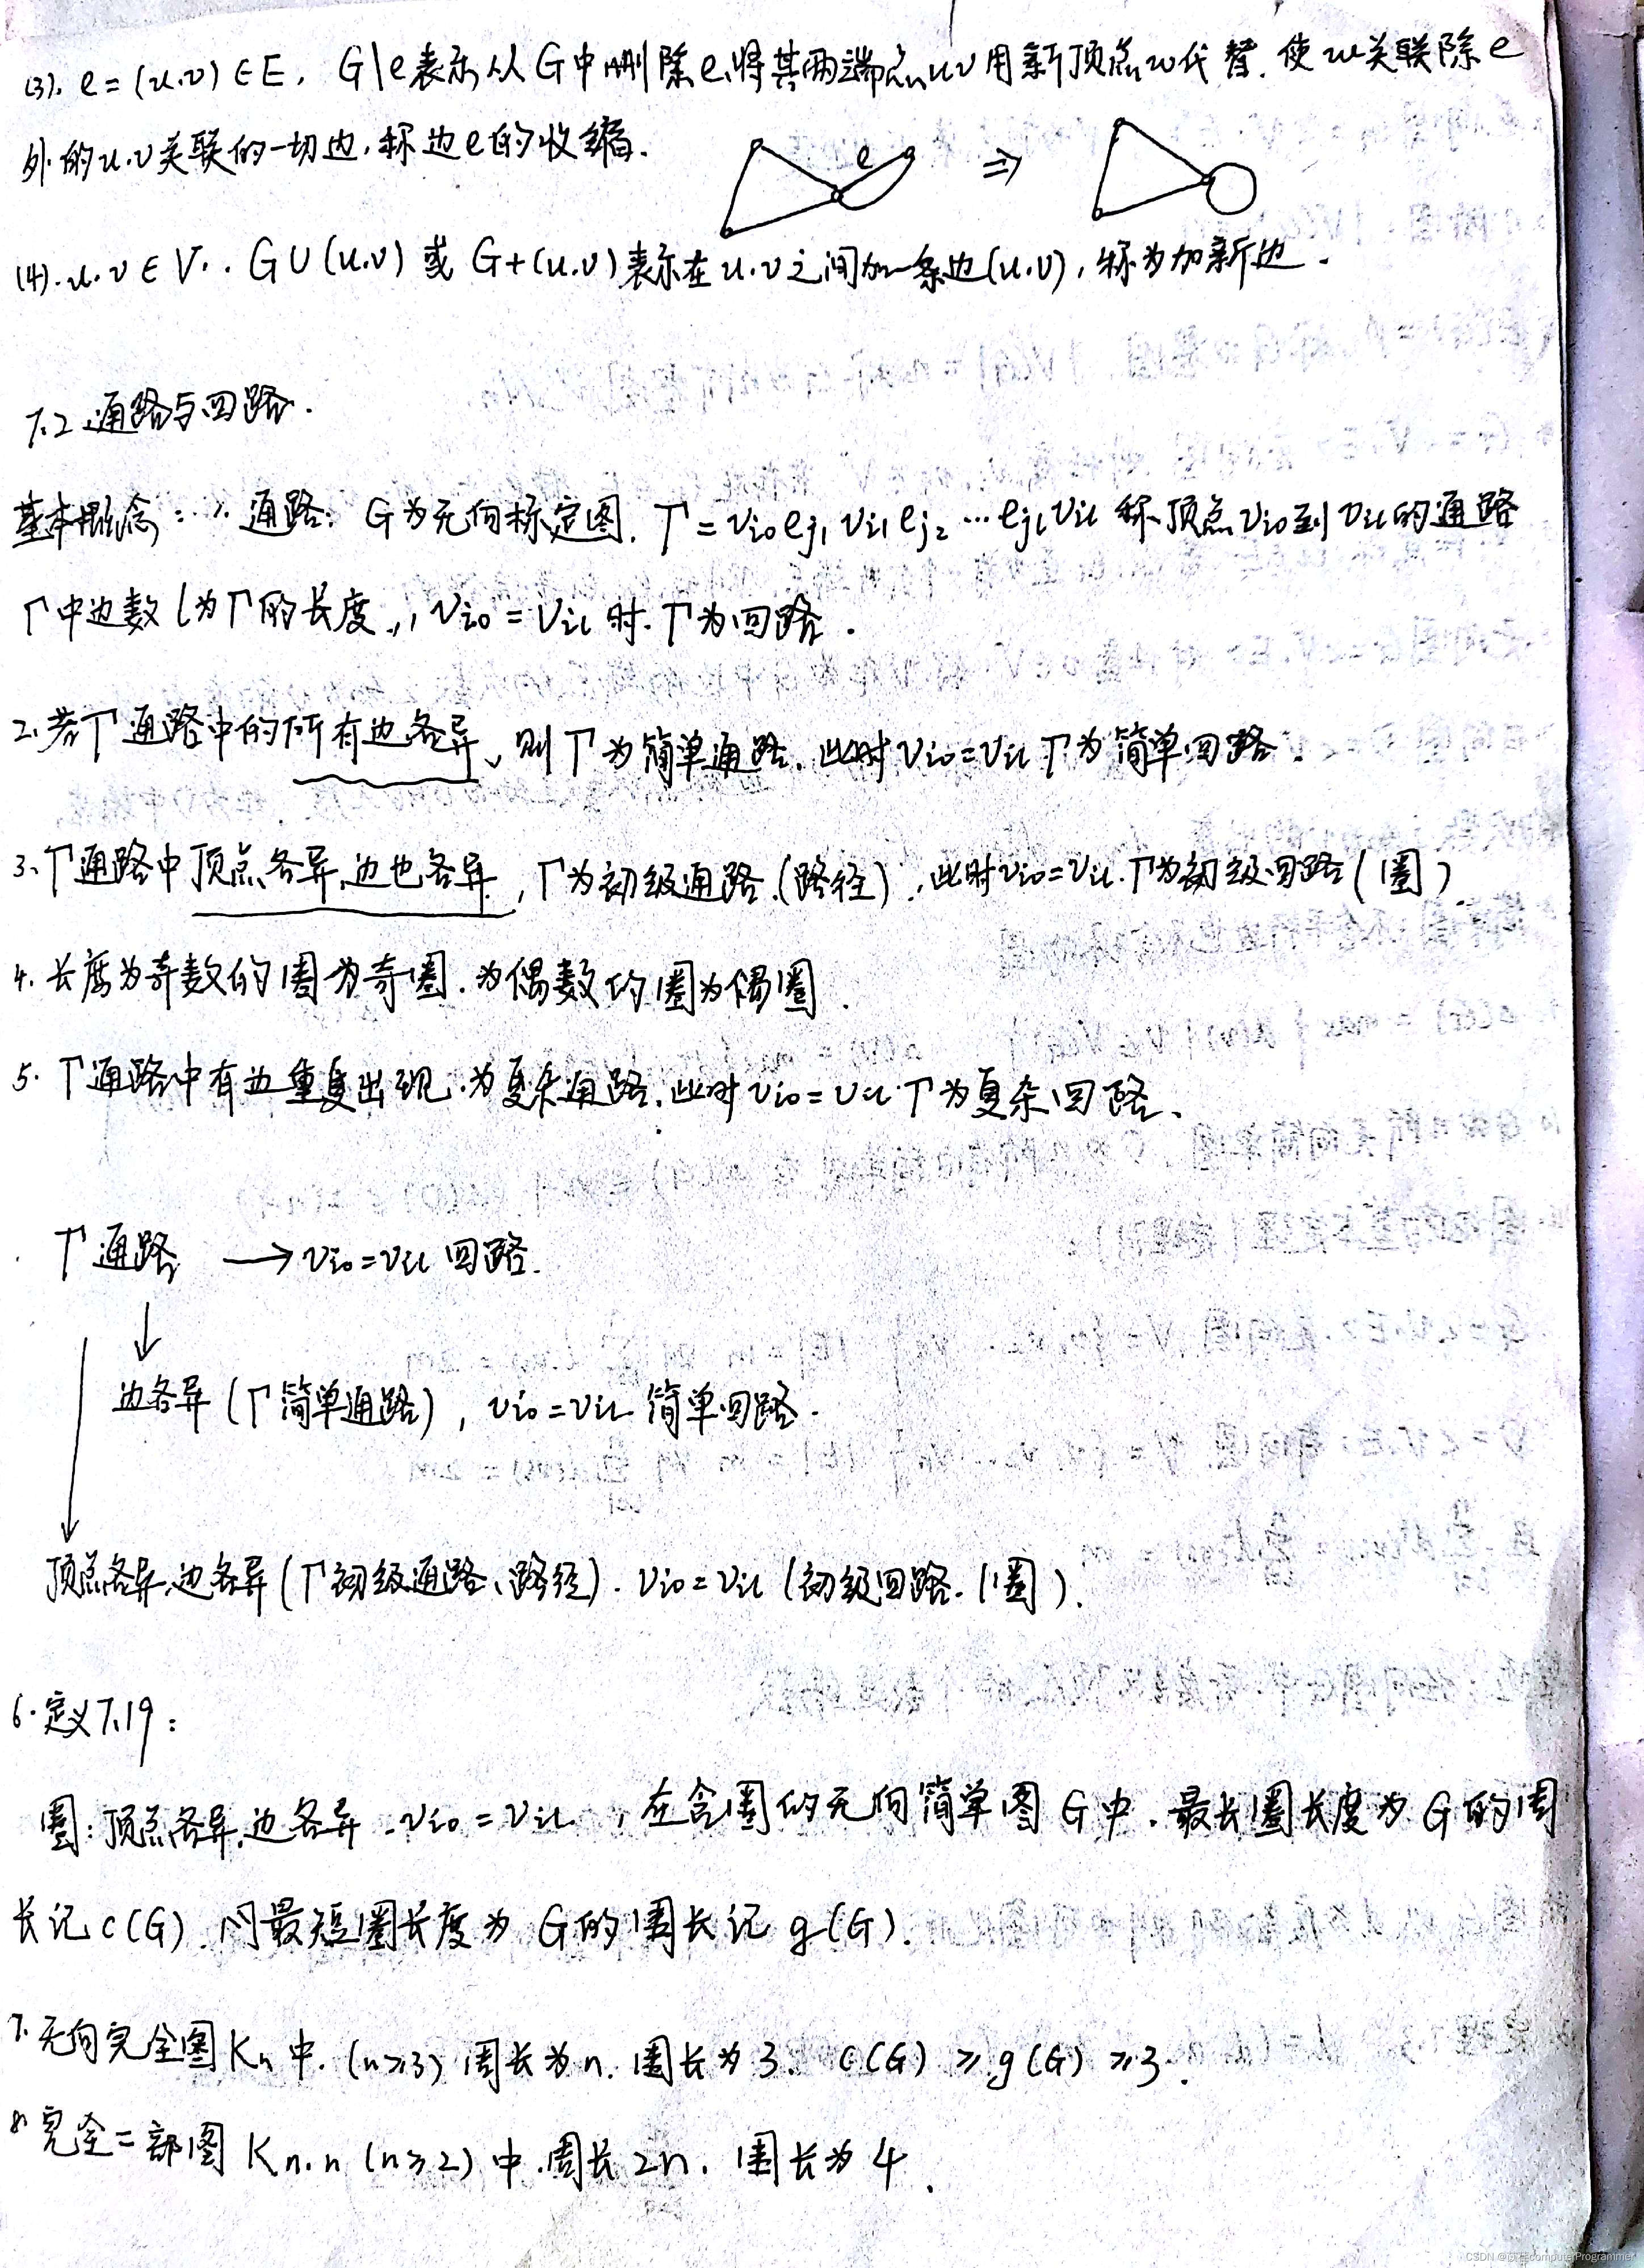 (3). e=(u.v)∈E. G\e表示从G中删除e,将其两端点u.v用新顶点w代替.使w关联除e
外的u.v关联的一切边.称边e的收缩.
e ⇒
(4).u.v∈V.. G∪(u.v)或G+(u.v)表示在u.v之间加一条边(u.v),称为加新边.
7.2 通路与回路.
基本概念:1. 通路: G为无向标定图. Γ=vi0 ej1 vi1 ej2 …ejl vil 称顶点vi0到vil的通路
Γ中边数l为Γ的长度,, vi0=vil时.Γ为回路.
2.若Γ通路中的所有边各异,则Γ为简单通路.此时vi0=vil Γ为简单回路.
3、Γ通路中顶点各异、边也各异,Γ为初级通路.(路径).此时vi0=vil.Γ为初级回路(圈).
4.长度为奇数的圈为奇圈.为偶数的圈为偶圈.
5.Γ通路中有边重复出现.为复杂通路.此时vi0=vil Γ为复杂回路、
Γ通路 →vi0=vil 回路.
↓
边各异(Γ简单通路),vi0=vil 简单回路.
顶点各异、边各异(Γ初级通路、路径).vi0=vil(初级回路.圈).
6.定义7.19:
圈:顶点各异、边各异.vi0=vil.,在含圈的无向简单图G中.最长圈长度为G的周
长记c(G).最短圈长度为G的围长记g(G).
7.无向完全图Kn中.(n≥3)周长为n.围长为3. c(G)≥g(G)≥3.
8.完全二部图Kn.n(n≥2)中.周长2n.围长为4.